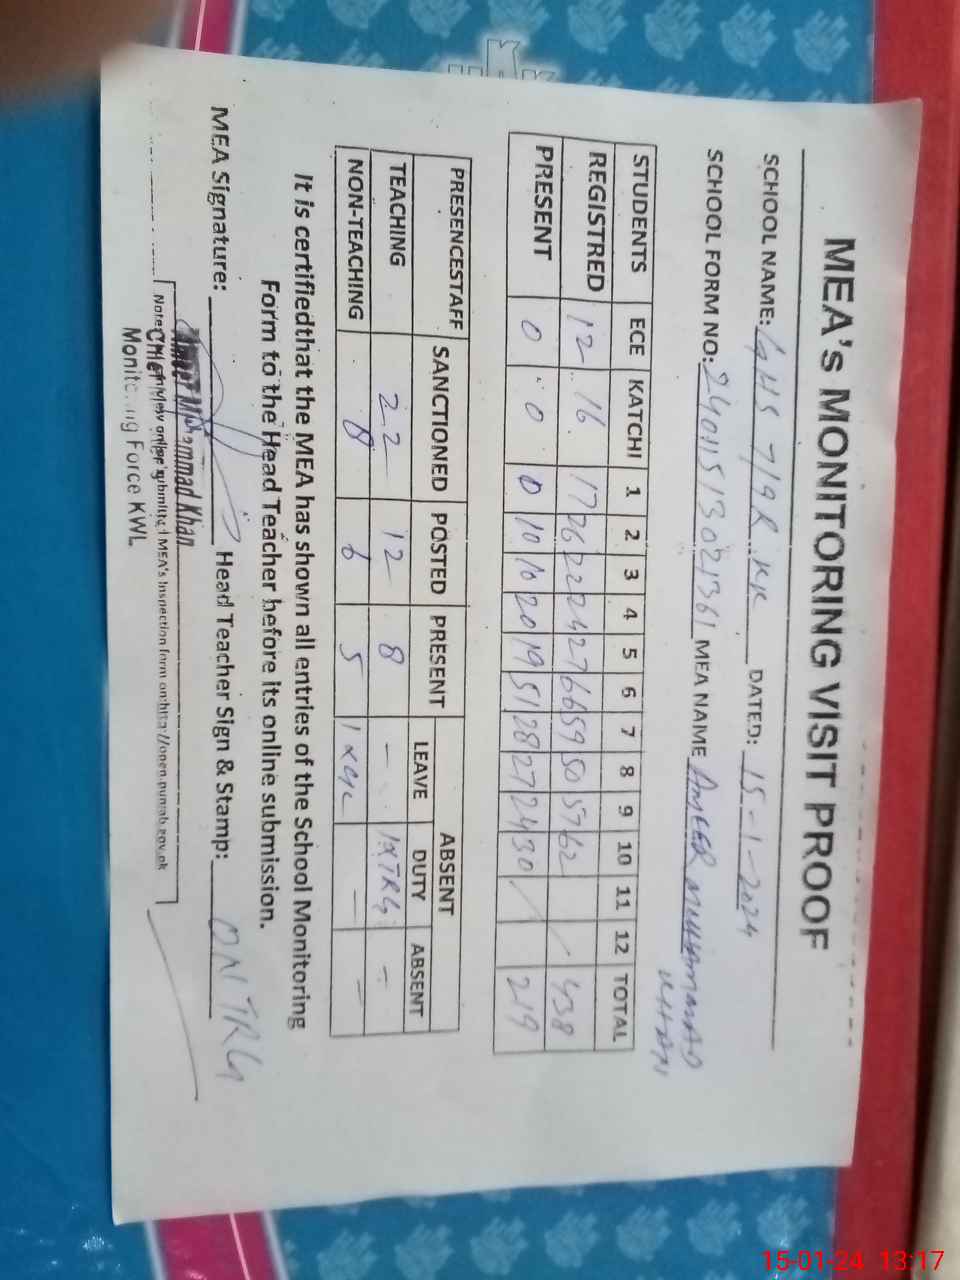 MEA's MONITORING VISIT PROOF
SCHOOL NAME: GHS 7/9R KK DATED: 15-1-2024
SCHOOL FORM NO: 24011513021361 MEA NAME AMEER MUHAMMAD
KHAN
STUDENTS ECE KATCHI 1 2 3 4 5 6 7 8 9 10 11 12 TOTAL
REGISTRED 12 16 17 26 22 24 27 66 59 50 57 62 / 438
PRESENT 0 0 0 10 10 20 19 51 28 27 24 30 / 219
PRESENCESTAFF SANCTIONED POSTED PRESENT ABSENT
LEAVE DUTY ABSENT
TEACHING 22 12 8 - 1xTRG -
NON-TEACHING 8 6 5 - -
It is certifiedthat the MEA has shown all entries of the School Monitoring
Form to the Head Teacher before its online submission.
MEA Signature: Head Teacher Sign & Stamp: ON TRG
Ameer Muhammad Khan
Note: view online submitted MEA's Inspection form on:http://open.punjab.gov.pk
Chief
Monitoring Force KWL
15-01-24 13:17